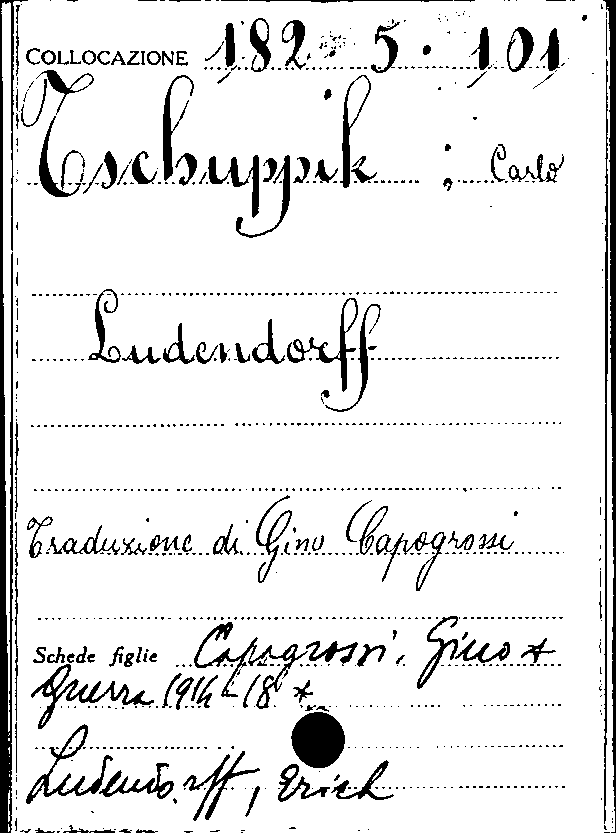 COLLOCAZIONE 182. 5. 101
Tschuppik ; Carlo
Ludendorff
Traduzione di Gino Capogrossi
Schede figlie Capogrossi, Gino *
Guerra 1914-18 *
Ludendorff, Erich